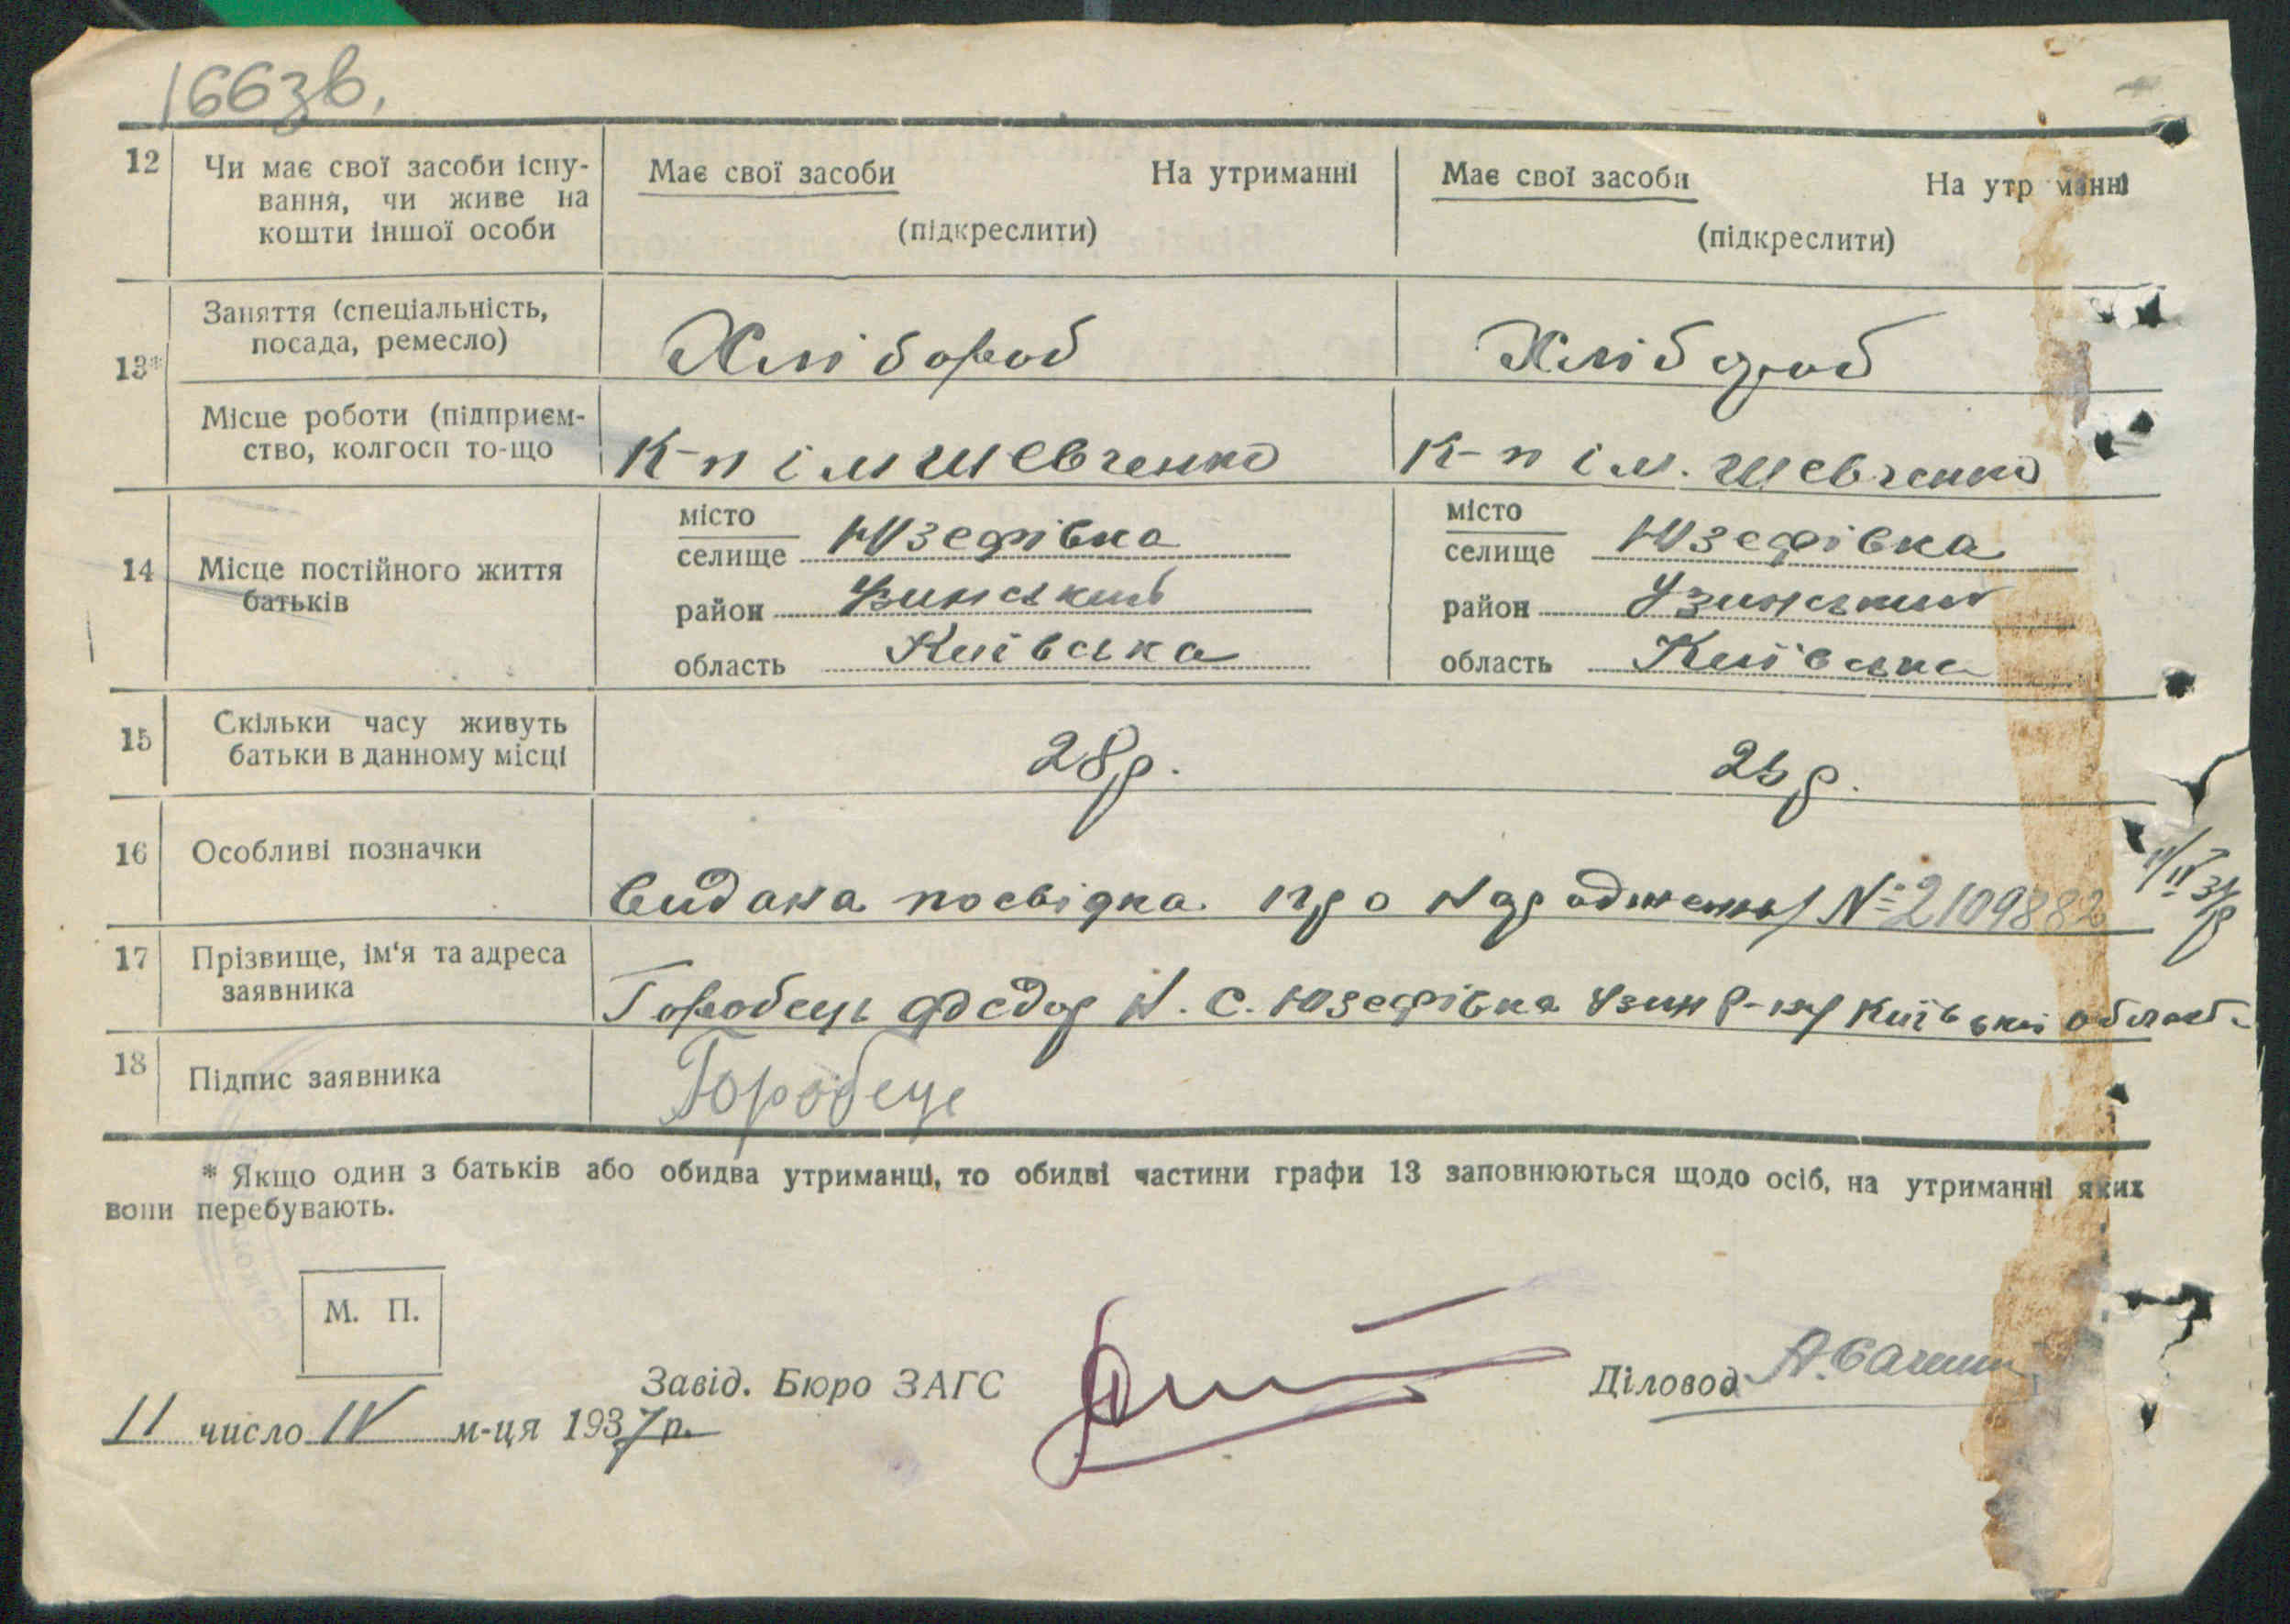 166зв.
12 Чи має свої засоби існу-
вання, чи живе на
кошти іншої особи
Має свої засоби На утриманні
(підкреслити)
Має свої засоби На утр манні
(підкреслити)
13*
Заняття (спеціальність,
посада, ремесло)
Хлібороб
Хлібороб
Місце роботи (підприєм-
ство, колгосп то-що
К-п ім Шевченко
К-п ім. Шевченко
14 Місце постійного життя
батьків
місто
селище Юзефівка
район Узинський
область Київська
місто
селище Юзефівка
район Узинський
область Київська
15 Скільки часу живуть
батьки в данному місці
28р.
25р.
16 Особливі позначки
Видана посвідка про народження № 2109882
11/IV 37р
17 Прізвище, ім'я та адреса
заявника
Горобець Федор Н. С. Юзефівка Узин р-ну Київської област.
18 Підпис заявника
Горобец
* Якщо один з батьків або обидва утриманці, то обидві частини графи 13 заповнюються щодо осіб, на утриманні яких
вони перебувають.
М. П.
Завід. Бюро ЗАГС
Діловод
11 число IV м-ця 1937 р.